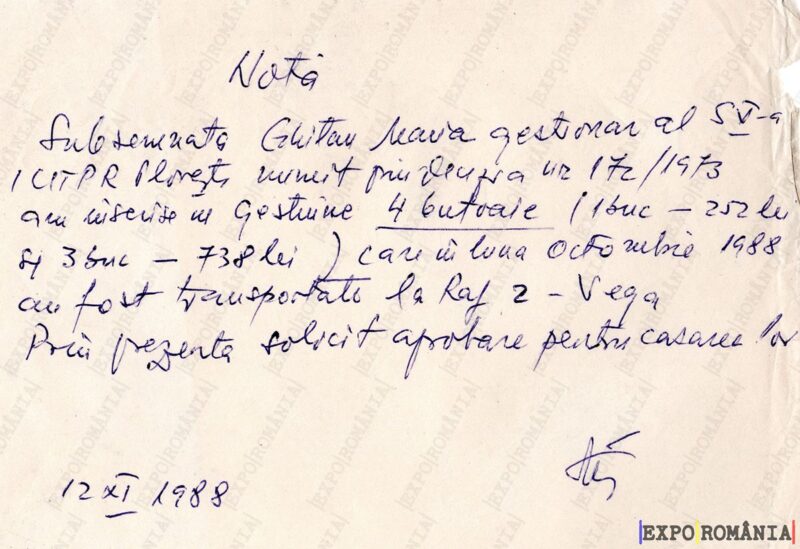 Notă
Subsemnata Ghitan Maria gestionar al S V-a
ICITPR Ploiești numit prin decizia nr 172/1973
am înscrise în gestiune 4 butoaie (1 buc — 252 lei
și 3 buc — 738 lei) care în luna Octombrie 1988
au fost transportate la Raf 2 - Vega
Prin prezenta solicit aprobare pentru casarea lor
12 XI 1988
EXPO ROMÂNIA